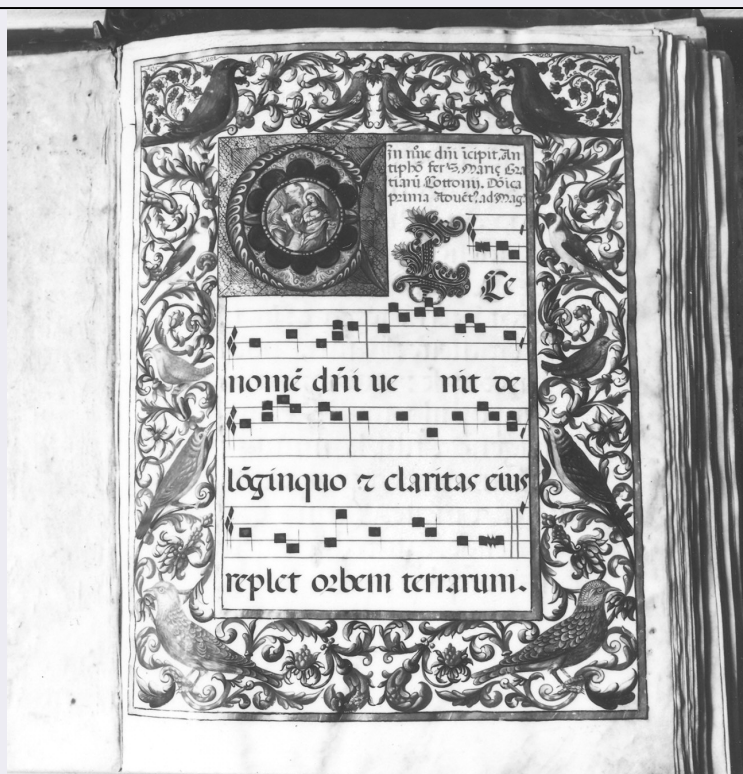 In nõie dñi ĩcipit, An
tiphõ fer. S. Marię Gra
tiarũ Cottonij. Dõica
prima Aduẽt9 ad Mag.
E Ce
nomẽ dñi ue nit de
lõginquo ⁊ claritas eius
replet orbem terrarum.